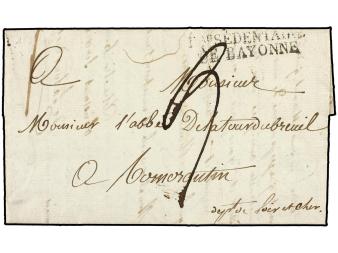 Bau SEDENTAIRE
DE BAYONNE
A Monsieur
Monsieur l'abbé Delatourdubreuil
A Romorantin
dept de Loir et Cher.